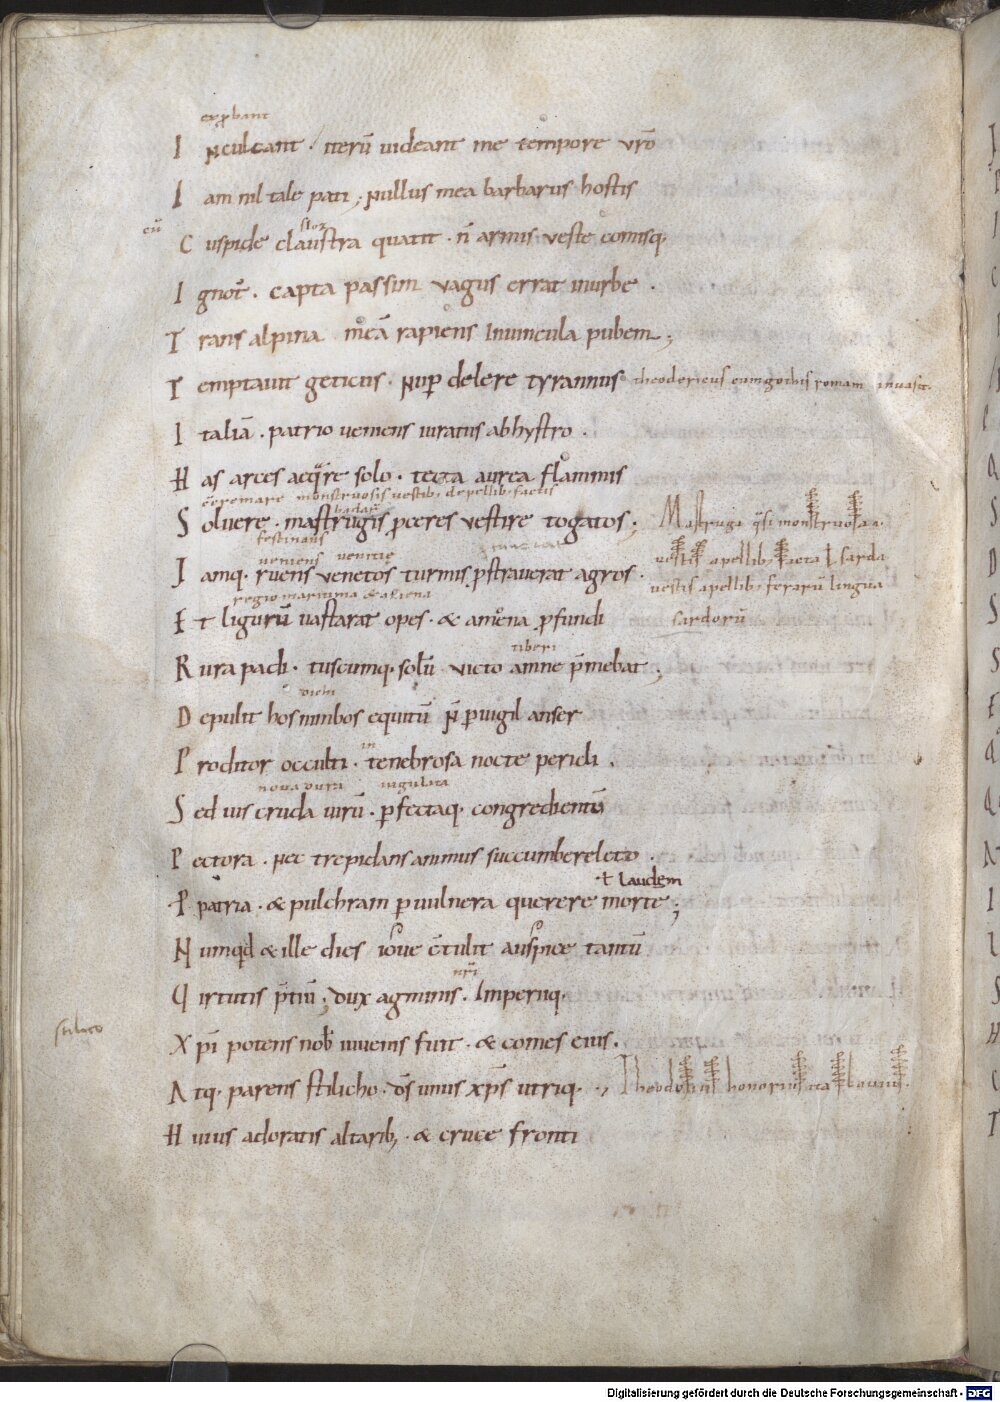 exprobant
I nculcant . iterū uideant me tempore vr̄o
I am nil tale pati ; nullus mea barbarus hostis
cū
C uspide claustra quatit . n̄ armis veste comisq;
I gnot' . capta passim vagus errat inurbe .
T rans alpina meā rapiens Inuincula pubem ;
T emptauit geticus . nup̄ delere tyrannus theodericus cumgothis romam inuasit.
I taliā . patrio ueniens iuratus abhystro .
H as arces aeq̄re solo . tecta aurea flammis
c̄cremare monstruosis uestib; depellib; factis
S oluere . mastrugis p̄ceres vestire togatos ; Mastruga q̄si monstruosa
festinans
ueniens uenitię
uestis apellib; facta ł sarda
I amq. ruens venetos turmis p̄strauerat agros .
uestis apellib; ferarū lingua
regio maritima
E t ligurū uastarat opes . & amoena p̄fundi
sardorū
tiberi
R ura padi . tuscumq. solū victo amne p̄mebat ;
D epulit hos nimbos equitū n̄ p̄uigil anser
in
P roditor occulti . tenebrosa nocte pericli .
iugulata
S ed uis cruda uirū . p̄fectaq. congredientū
P ectora . nec trepidans animus succumbereleto .
ł laudem
P patria . & pulchram p̄ uulnera querere morte ;
N umq̄d & ille dies ioue c̄tulit auspice tantū
nr̄i
Q irtutis p̄tiū ; dux agminis . Imperiiq.
stilico
X pi potens nob' iuuenis fuit . & comes eius .
A tq. parens stilicho . dš unus xp̄s utriq. ., Theodosiī honoriī
H uius adoratis altarib; . & cruce fronti
Digitalisierung gefördert durch die Deutsche Forschungsgemeinschaft - DFG